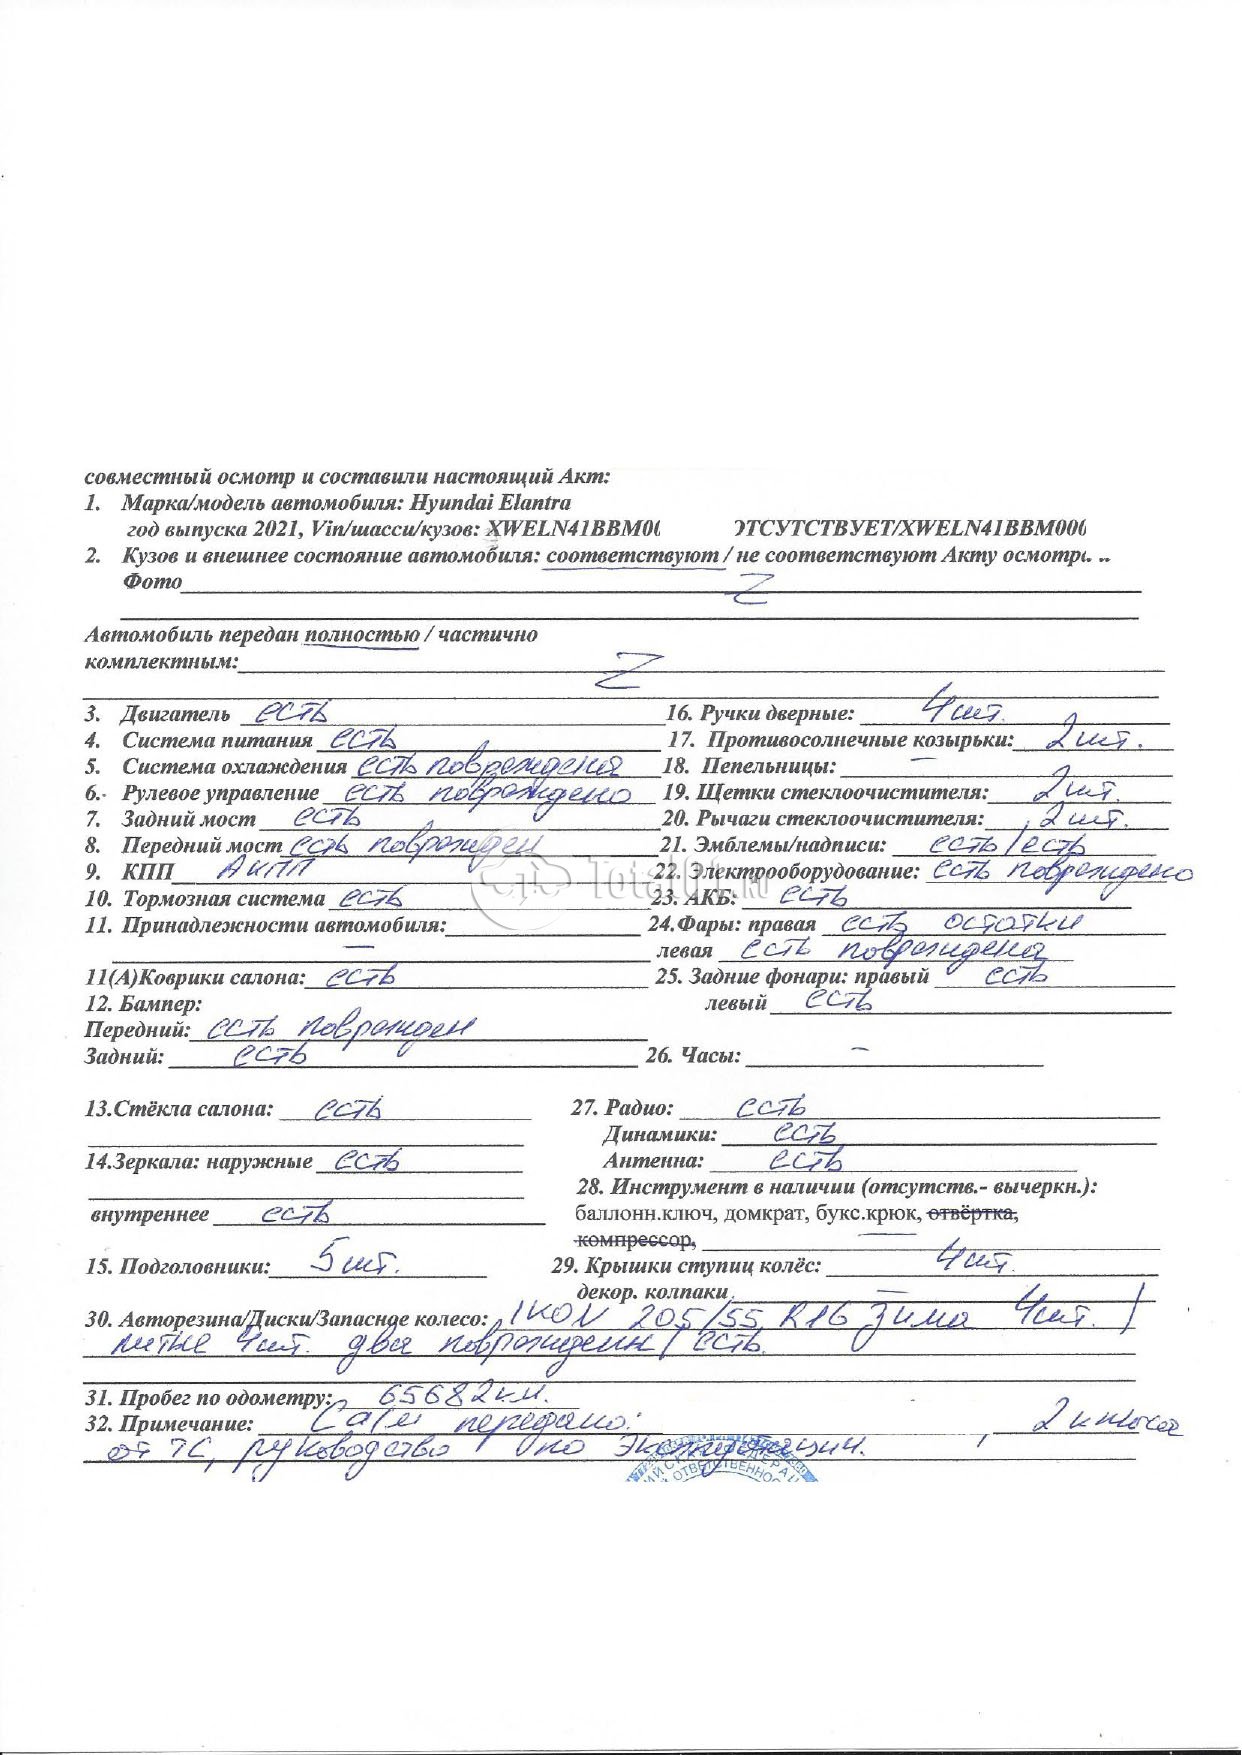 совместный осмотр и составили настоящий Акт:
1. Марка/модель автомобиля: Hyundai Elantra
год выпуска 2021, Vin/шасси/кузов: XWELN41BBM00 ОТСУТСТВУЕТ/XWELN41BBM000
2. Кузов и внешнее состояние автомобиля: соответствуют / не соответствуют Акту осмотра
Фото Z
Автомобиль передан полностью / частично
комплектным: Z
3. Двигатель есть 16. Ручки дверные: 4 шт.
4. Система питания есть 17. Противосолнечные козырьки: 2 шт.
5. Система охлаждения есть повреждена 18. Пепельницы: –
6. Рулевое управление есть повреждено 19. Щетки стеклоочистителя: 2 шт.
7. Задний мост есть 20. Рычаги стеклоочистителя: 2 шт.
8. Передний мост есть поврежден 21. Эмблемы/надписи: есть/есть
9. КПП АКПП 22. Электрооборудование: есть повреждено
10. Тормозная система есть 23. АКБ: есть
11. Принадлежности автомобиля: – 24. Фары: правая есть остатки
левая есть повреждена
11(А)Коврики салона: есть 25. Задние фонари: правый есть
12. Бампер: левый есть
Передний: есть поврежден
Задний: есть 26. Часы: –
13. Стёкла салона: есть 27. Радио: есть
Динамики: есть
14. Зеркала: наружные есть Антенна: есть
28. Инструмент в наличии (отсутств.- вычеркн.):
внутреннее есть баллонн.ключ, домкрат, букс.крюк, отвёртка,
компрессор, –
15. Подголовники: 5 шт. 29. Крышки ступиц колёс: 4 шт.
декор. колпаки –
30. Авторезина/Диски/Запасное колесо: IKON 205/55 R16 зима 4 шт. /
литые 4 шт. два повреждены / есть.
31. Пробег по одометру: 65682 км.
32. Примечание: передано: , 2 ключа
от ТС, руководство по эксплуатации.
ОТВЕТСТВЕННО
Total01.ru